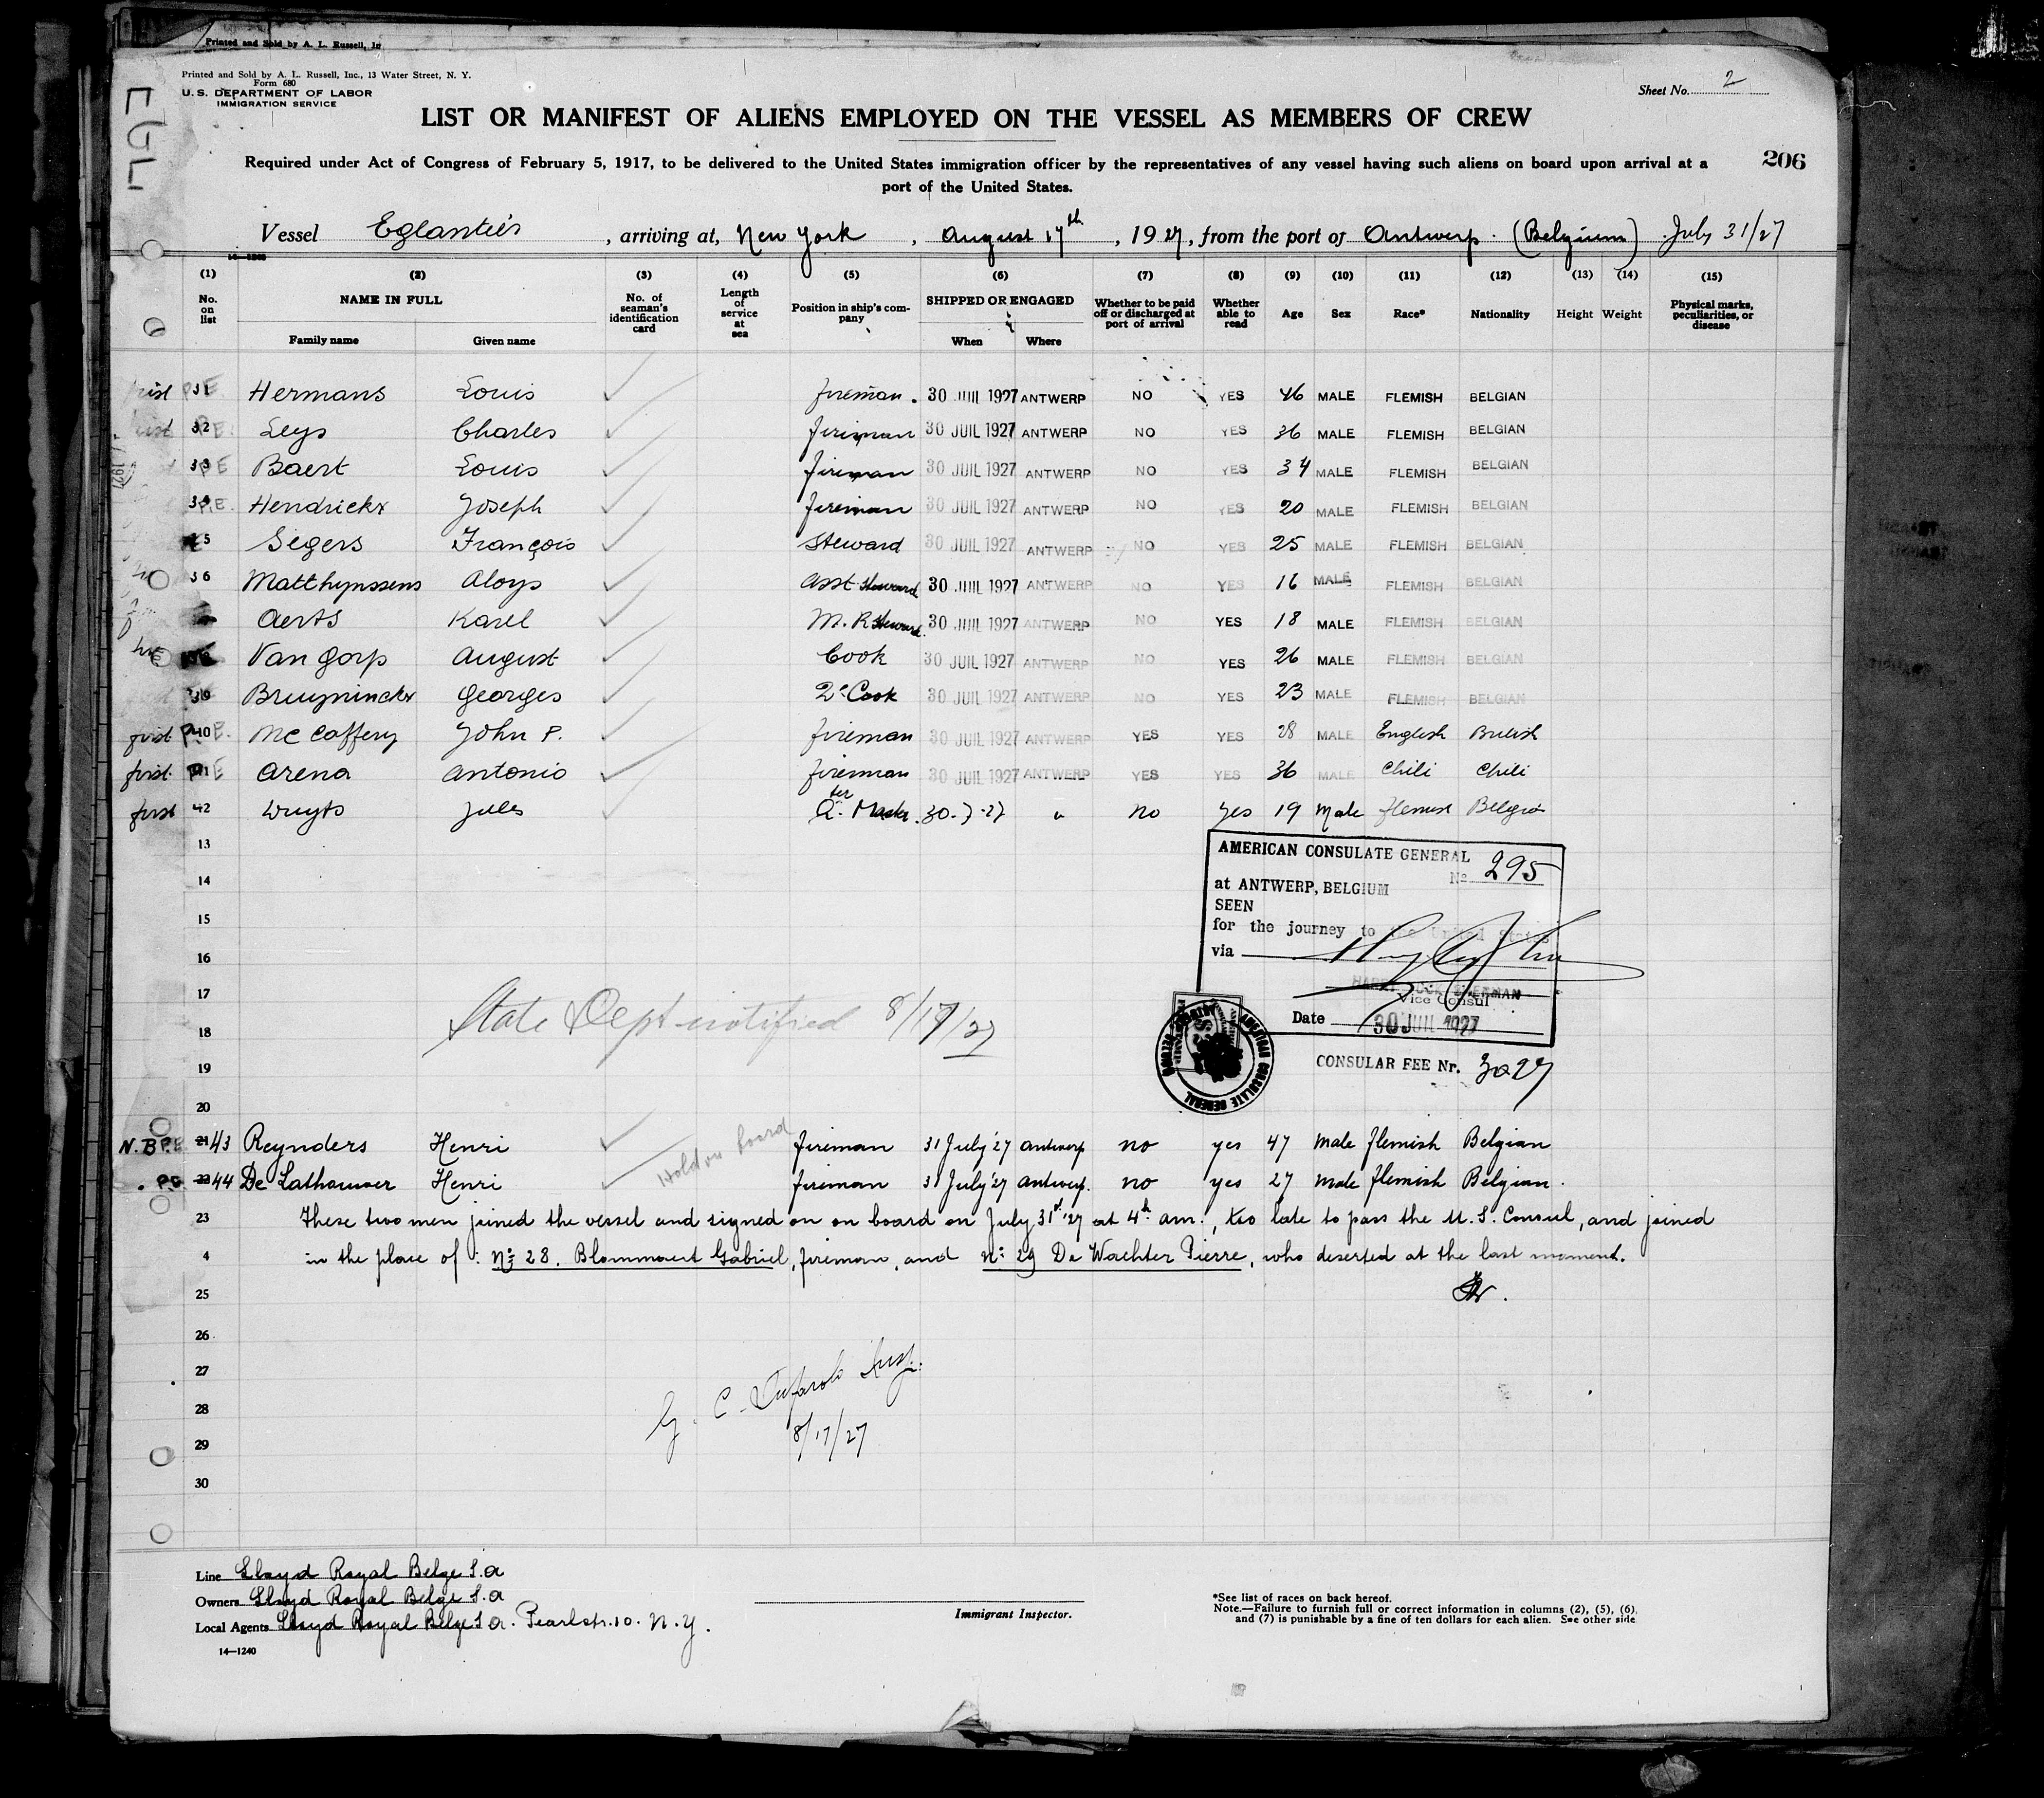 Printed and Sold by A. L. Russell, In
Printed and Sold by A. L. Russell, Inc., 13 Water Street, N. Y.
Form 680
U. S. DEPARTMENT OF LABOR
IMMIGRATION SERVICE
Sheet No. 2
LIST OR MANIFEST OF ALIENS EMPLOYED ON THE VESSEL AS MEMBERS OF CREW
Required under Act of Congress of February 5, 1917, to be delivered to the United States immigration officer by the representatives of any vessel having such aliens on board upon arrival at a
port of the United States.
206
Vessel Eglantier, arriving at, New York, August 17th, 1927, from the port of Antwerp. (Belgium) July 31/27
(1) (2) (3) (4) (5) (6) (7) (8) (9) (10) (11) (12) (13) (14) (15)
No. on list NAME IN FULL Family name Given name No. of seaman's identification card Length of service at sea Position in ship's company SHIPPED OR ENGAGED When Where Whether to be paid off or discharged at port of arrival Whether able to read Age Sex Race* Nationality Height Weight Physical marks, peculiarities, or disease
31 Hermans Louis fireman. 30 JUIL 1927 ANTWERP NO YES 46 MALE FLEMISH BELGIAN
32 Leys Charles fireman 30 JUIL 1927 ANTWERP NO YES 36 MALE FLEMISH BELGIAN
33 PE Baert Louis fireman 30 JUIL 1927 ANTWERP NO YES 34 MALE FLEMISH BELGIAN
34 Hendrickx Joseph fireman 30 JUIL 1927 ANTWERP NO YES 20 MALE FLEMISH BELGIAN
5 Segers François Steward 30 JUIL 1927 ANTWERP NO YES 25 MALE FLEMISH BELGIAN
36 Matthynssens Aloys Asst Steward 30 JUIL 1927 ANTWERP NO YES 16 MALE FLEMISH BELGIAN
Aerts Karel M. R Steward. 30 JUIL 1927 ANTWERP NO YES 18 MALE FLEMISH BELGIAN
Van Gorp August Cook 30 JUIL 1927 ANTWERP NO YES 26 MALE FLEMISH BELGIAN
39 Bruyninckx Georges 2e Cook 30 JUIL 1927 ANTWERP NO YES 23 MALE FLEMISH BELGIAN
first P.E. 40 Mc Caffery John P. fireman 30 JUIL 1927 ANTWERP YES YES 28 MALE English British
first PE 41 Arena Antonio fireman 30 JUIL 1927 ANTWERP YES YES 36 MALE Chili Chili
first 42 Wuyts Jules 30-7-27 " no yes 19 Male Flemish
13
14
15
16
17
18
19
20
AMERICAN CONSULATE GENERAL
No 295
at ANTWERP, BELGIUM
SEEN
for the journey to the United States
via
Vice Consul
Date 30 JUIL 1927
CONSULAR FEE Nr. 3027
State Dept notified 8/17/27
Hold on board
N.B P.E 21 43 Reynders Henri fireman 31 July '27 Antwerp no yes 47 Male flemish Belgian
22 44 De Lathouwer Henri fireman 31 July '27 Antwerp. no yes 27 Male flemish Belgian.
23 These two men joined the vessel and signed on on board on July 31st '27 at 4h am., too late to pass the U. S. Consul, and joined
4 in the place of : No 28. Blommaert Gabriel, fireman, and No 29 De Wachter Pierre, who deserted at the last moment.
25
26
27
28
29
30
8/17/27
Line Lloyd Royal Belge S.A
Owners Lloyd Royal Belge S.A
Local Agents Lloyd Royal Belge S A. Pearlstr. 10. N.Y.
14—1240
Immigrant Inspector.
*See list of races on back hereof.
Note.—Failure to furnish full or correct information in columns (2), (5), (6),
and (7) is punishable by a fine of ten dollars for each alien. See other side